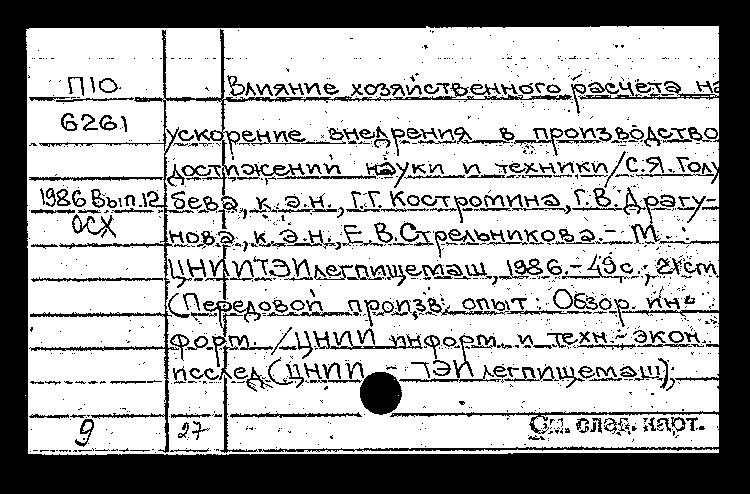 П10
6261
1986 Вып.12
ОСХ
Влияние хозяйственного расчета на
ускорение внедрения в производство
достижений науки и техники/С.Я.Голу
бева, к.э.н., Г.Г.Костромина, Г.В.Драгу-
нова, к.э.н., Е.В.Стрельникова.- М.:
ЦНИИТЭИлегпищемаш, 1986.- 49с.; 21см
(Передовой произв. опыт: Обзор. ин-
форм. /ЦНИИ информ. и техн.-экон.
исслед (ЦНИИ - ТЭИлегпищемаш);
9 27 См. след. карт.